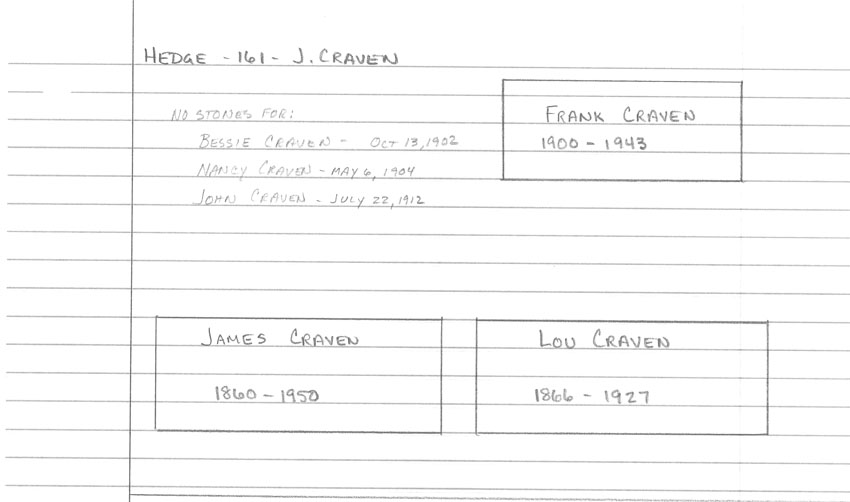 HEDGE - 161 - J. CRAVEN
NO STONES FOR:
BESSIE CRAVEN - OCT 13, 1902
NANCY CRAVEN - MAY 6, 1904
JOHN CRAVEN - JULY 22, 1912
FRANK CRAVEN
1900 - 1943
JAMES CRAVEN
1860 - 1950
LOU CRAVEN
1866 - 1927